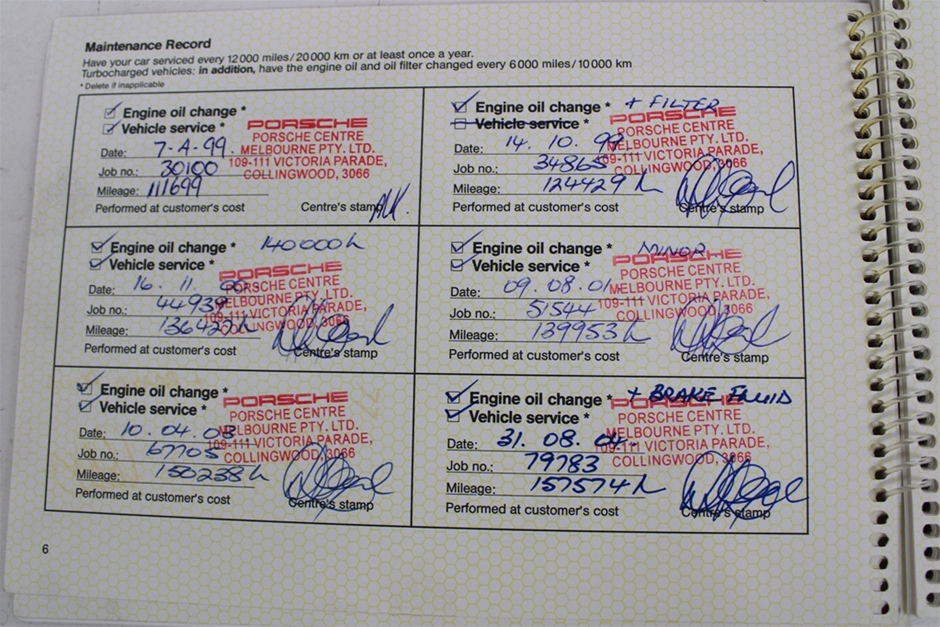 Maintenance Record
Have your car serviced every 12 000 miles/20 000 km or at least once a year.
Turbocharged vehicles: in addition, have the engine oil and oil filter changed every 6 000 miles/10 000 km
* Delete if inapplicable
Engine oil change *
Vehicle service *
PORSCHE
PORSCHE CENTRE
MELBOURNE PTY. LTD.
109-111 VICTORIA PARADE,
COLLINGWOOD, 3066
Date: 7-4-99.
Job no.: 30100
Mileage: 111699
Performed at customer's cost
Centre's stamp
Engine oil change * + FILTER
Vehicle service *
PORSCHE
PORSCHE CENTRE
MELBOURNE PTY. LTD.
109-111 VICTORIA PARADE,
COLLINGWOOD, 3066
Date: 14. 10. 99
Job no.: 34865
Mileage: 124429
Performed at customer's cost
Centre's stamp
Engine oil change * 140000
Vehicle service *
PORSCHE
PORSCHE CENTRE
MELBOURNE PTY. LTD.
109-111 VICTORIA PARADE,
COLLINGWOOD, 3066
Date: 16. 11.
Job no.: 44939
Mileage:
Performed at customer's cost
Centre's stamp
Engine oil change * MINOR
Vehicle service *
PORSCHE
PORSCHE CENTRE
MELBOURNE PTY. LTD.
109-111 VICTORIA PARADE,
COLLINGWOOD, 3066
Date: 09. 08. 01
Job no.: 51544
Mileage: 139953
Performed at customer's cost
Centre's stamp
Engine oil change *
Vehicle service *
PORSCHE
PORSCHE CENTRE
MELBOURNE PTY. LTD.
109-111 VICTORIA PARADE,
COLLINGWOOD, 3066
Date: 10. 04. 03
Job no.: 67705
Mileage: 150238
Performed at customer's cost
Centre's stamp
Engine oil change * + BRAKE FLUID
Vehicle service *
PORSCHE
PORSCHE CENTRE
MELBOURNE PTY. LTD.
109-111 VICTORIA PARADE,
COLLINGWOOD, 3066
Date: 31. 08. 04.
Job no.: 79783
Mileage: 157574
Performed at customer's cost
Centre's stamp
6